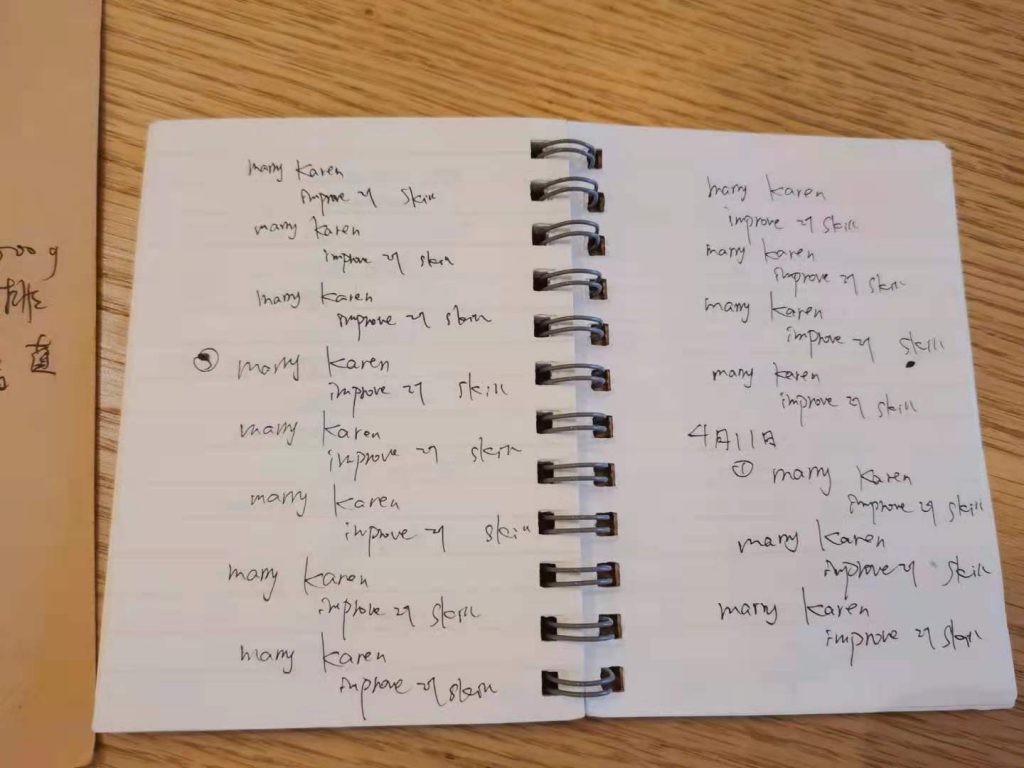 marry Karen
improve 러 skill
marry Karen
improve 러 skill
marry Karen
improve 러 skill
③ marry Karen
improve 러 skill
marry Karen
improve 러 skill
marry Karen
improve 러 skill
marry Karen
improve 러 skill
marry Karen
improve 러 skill
marry Karen
improve 러 skill
marry Karen
improve 러 skill
marry Karen
improve 러 skill
marry Karen
improve 러 skill
4月11日
① marry Karen
improve 러 skill
marry Karen
improve 러 skill
marry Karen
improve 러 skill